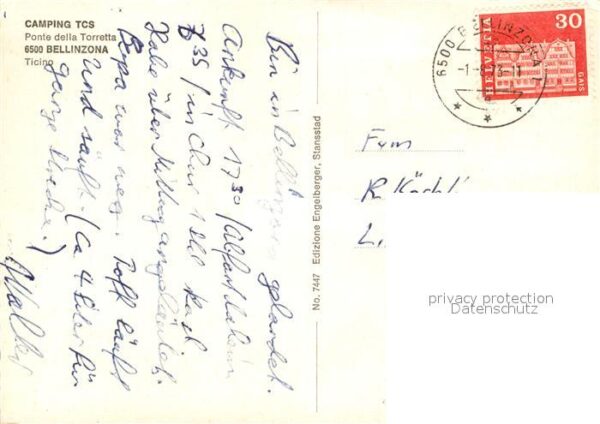 CAMPING TCS
Ponte della Torretta
6500 BELLINZONA
Ticino
Bin in Bellinzona gelandet.
Ankunft 1730 / Abfahrt daheim
735 / in Chur 1 Std Rast
Habe über Mittag angeläutet.
Papa war weg. Töff läuft
und säuft. (Ca 4 Liter für
ganze Strecke.)
Walter
No. 7447 Edizione Engelberger, Stansstad
6500 BELLINZONA 1
HELVETIA
30
GAIS
Fam
R. Kächli
L.
privacy protection
Datenschutz